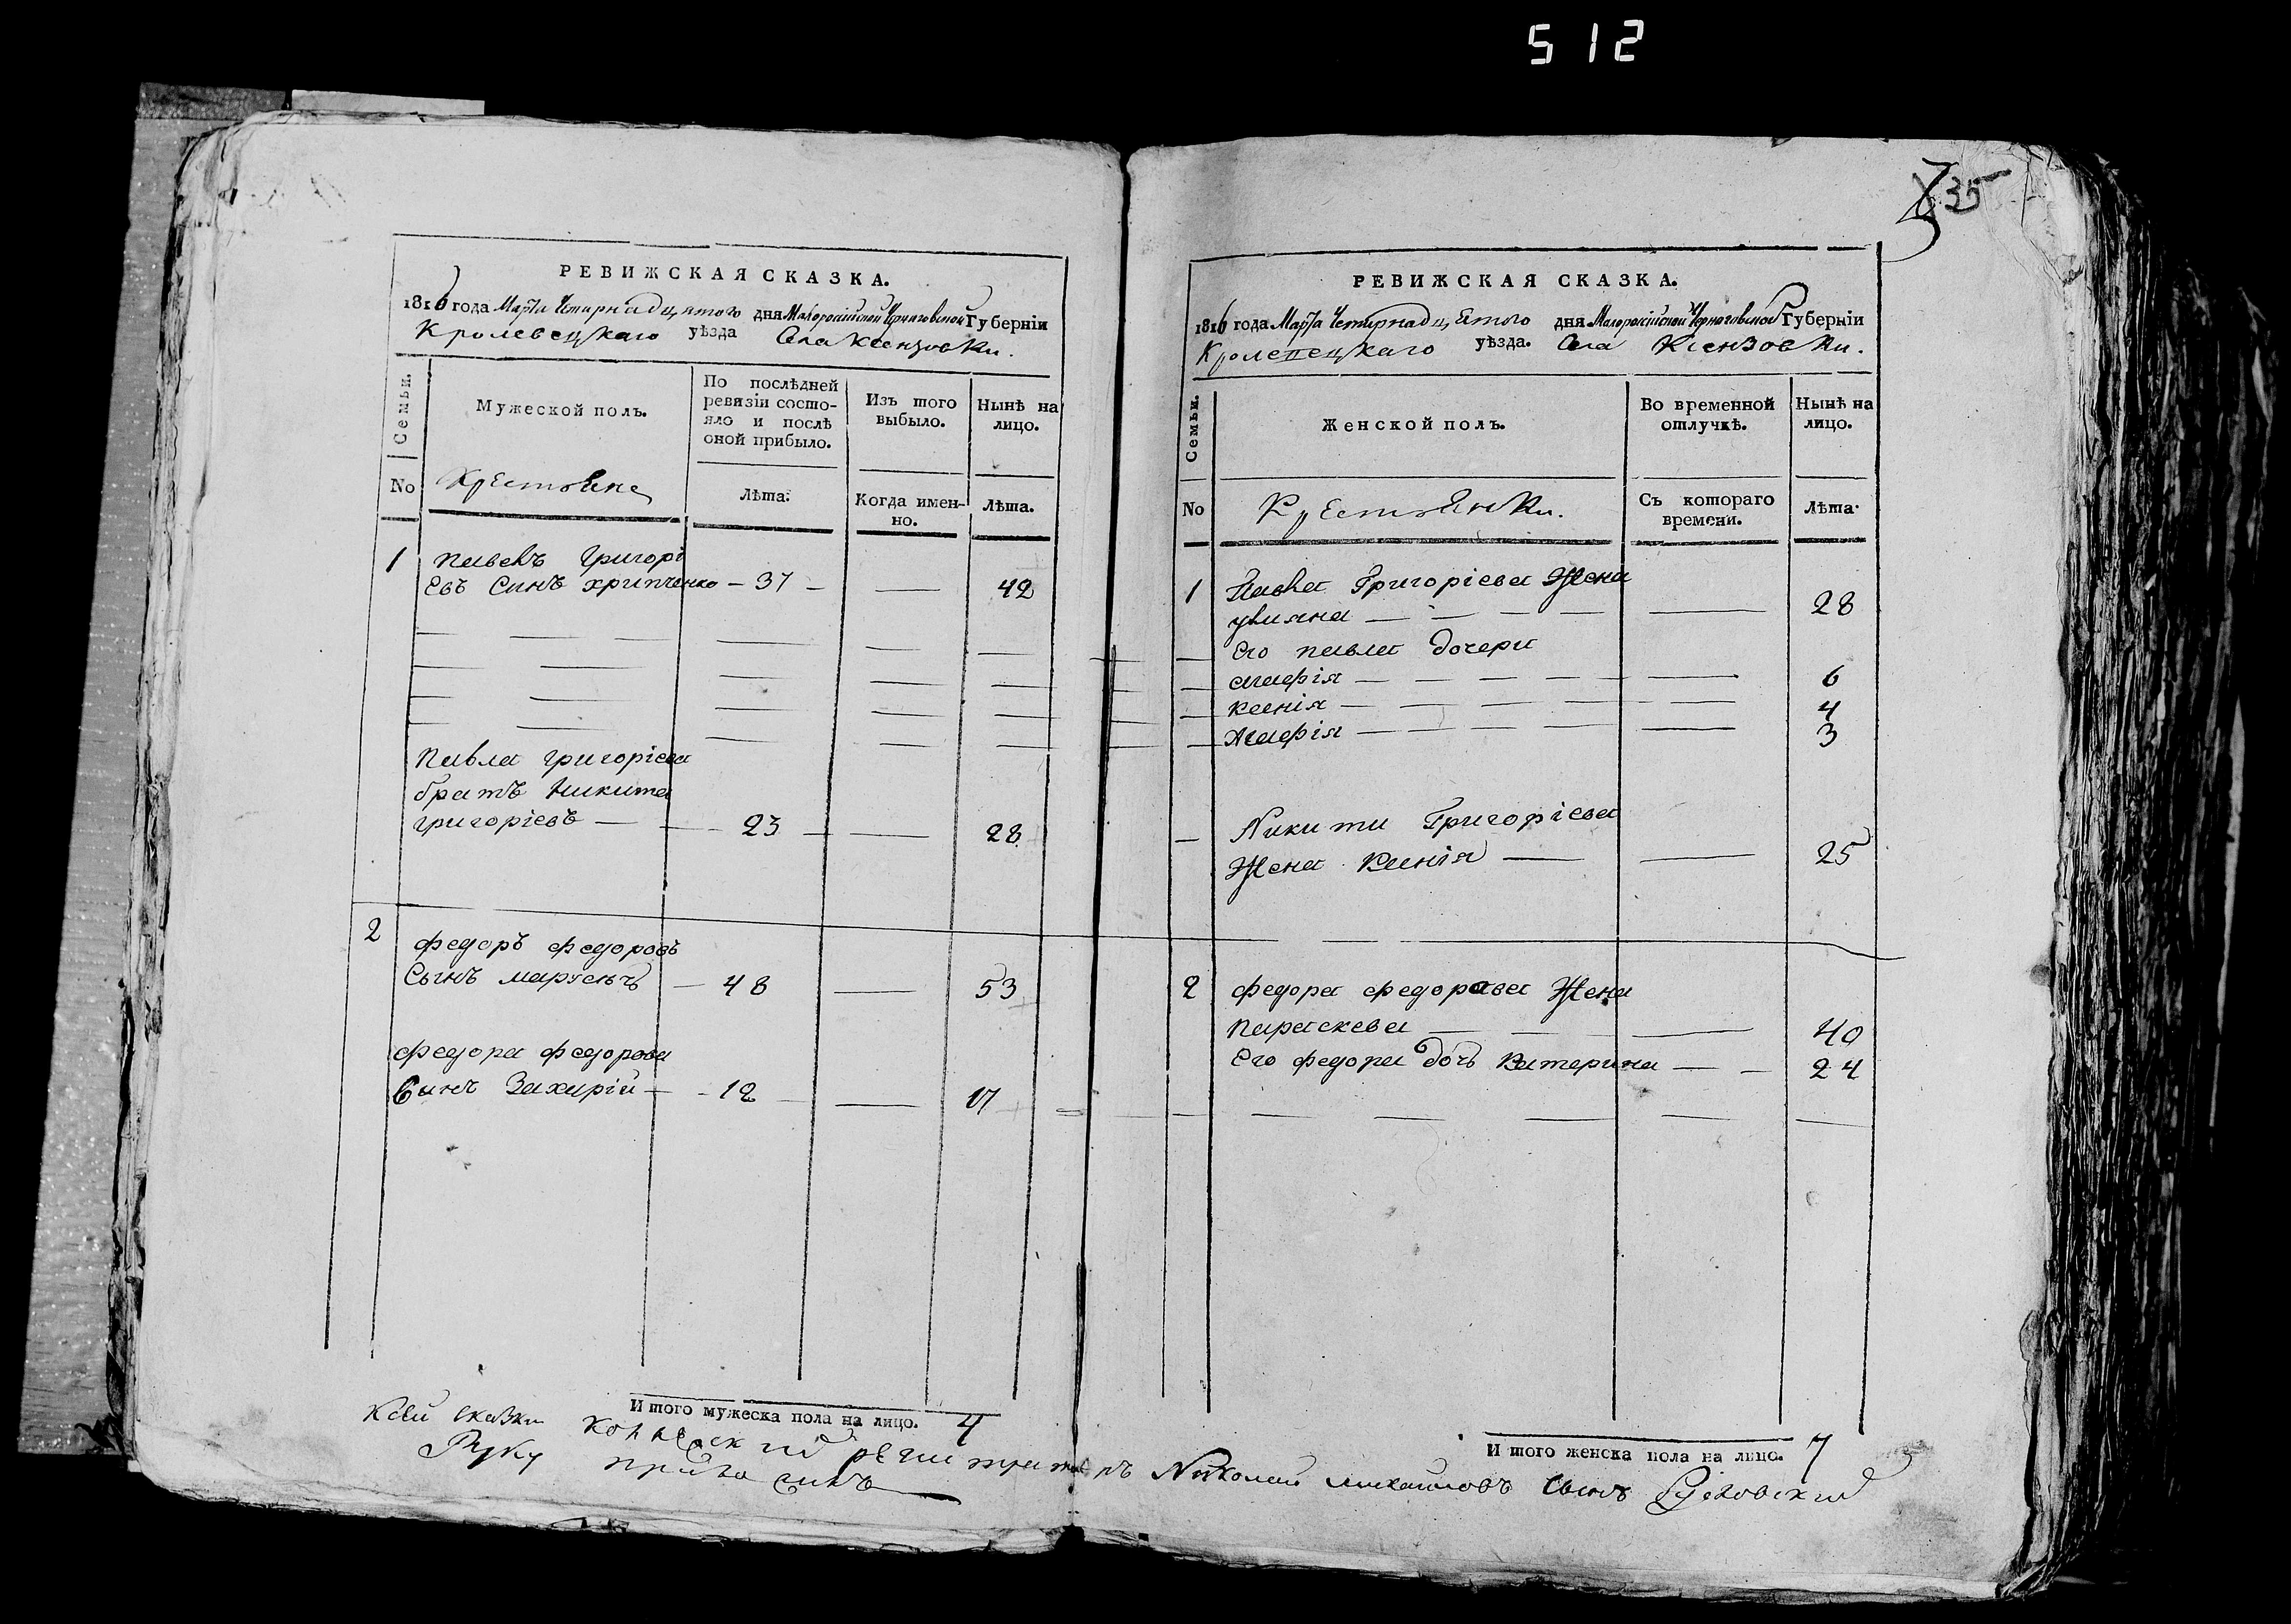 512
35
РЕВИЖСКАЯ СКАЗКА.
1816 года Марта Четирнадцятого дня Малороссійской Черниговской Губерніи
Кролевецкаго уѣзда Села Ксензовки.
Семьи.
Мужеской полъ.
По послѣдней
ревизіи состо-
яло и послѣ
оной прибыло.
Изъ того
выбыло.
Нынѣ на
лицо.
No
Крестяне
Лѣта.
Когда имен-
но.
Лѣта.
1 Павелъ Григорі
евъ Синъ хрипченко — 37 — 42
Павла григоріева
братъ Никита
григоріевъ — 23 — 28
2 федоръ федоровъ
Сынъ — 48 — 53
федора федорова
Сынъ Захарій — 12 — 17
Итого мужеска пола на лицо. 4
РЕВИЖСКАЯ СКАЗКА.
1816 года Марта Четирнадцятого дня Малороссійской Черниговской Губерніи
Кролевецкаго уѣзда. Села Ксензовки.
Семьи.
Женской полъ.
Во временной
отлучкѣ.
Нынѣ на
лицо.
No
Крестянки.
Съ котораго
времени.
Лѣта.
1 Павла Григоріева Жена
улияна — 28
Его павла дочери
— 6
ксенія — 4
— 3
Никити Григоріева
Жена Ксенія — 25
2 федора федорова Жена
параскева — 40
Его федора дочь Катерина — 24
Итого женска пола на лицо. 7
К сей сказки регистраторъ Николай михайловъ Сынъ
Руку приложилъ